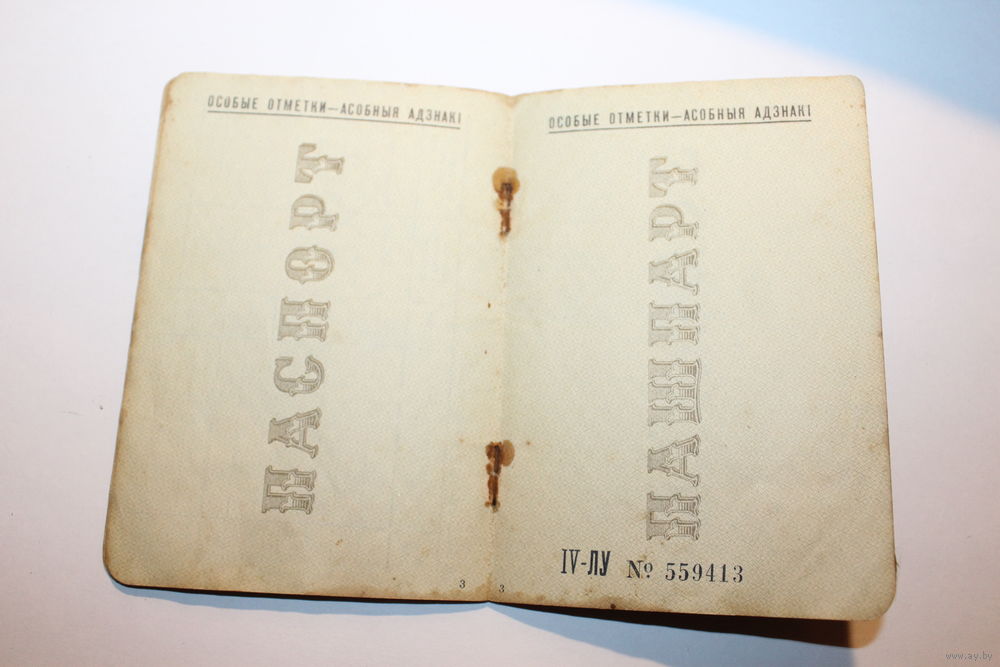 ОСОБЫЕ ОТМЕТКИ—АСОБНЫЯ АДЗНАКІ
ПАСПОРТ
3
ОСОБЫЕ ОТМЕТКИ—АСОБНЫЯ АДЗНАКІ
ПАШПАРТ
IV-ЛУ № 559413
3
www.ay.by